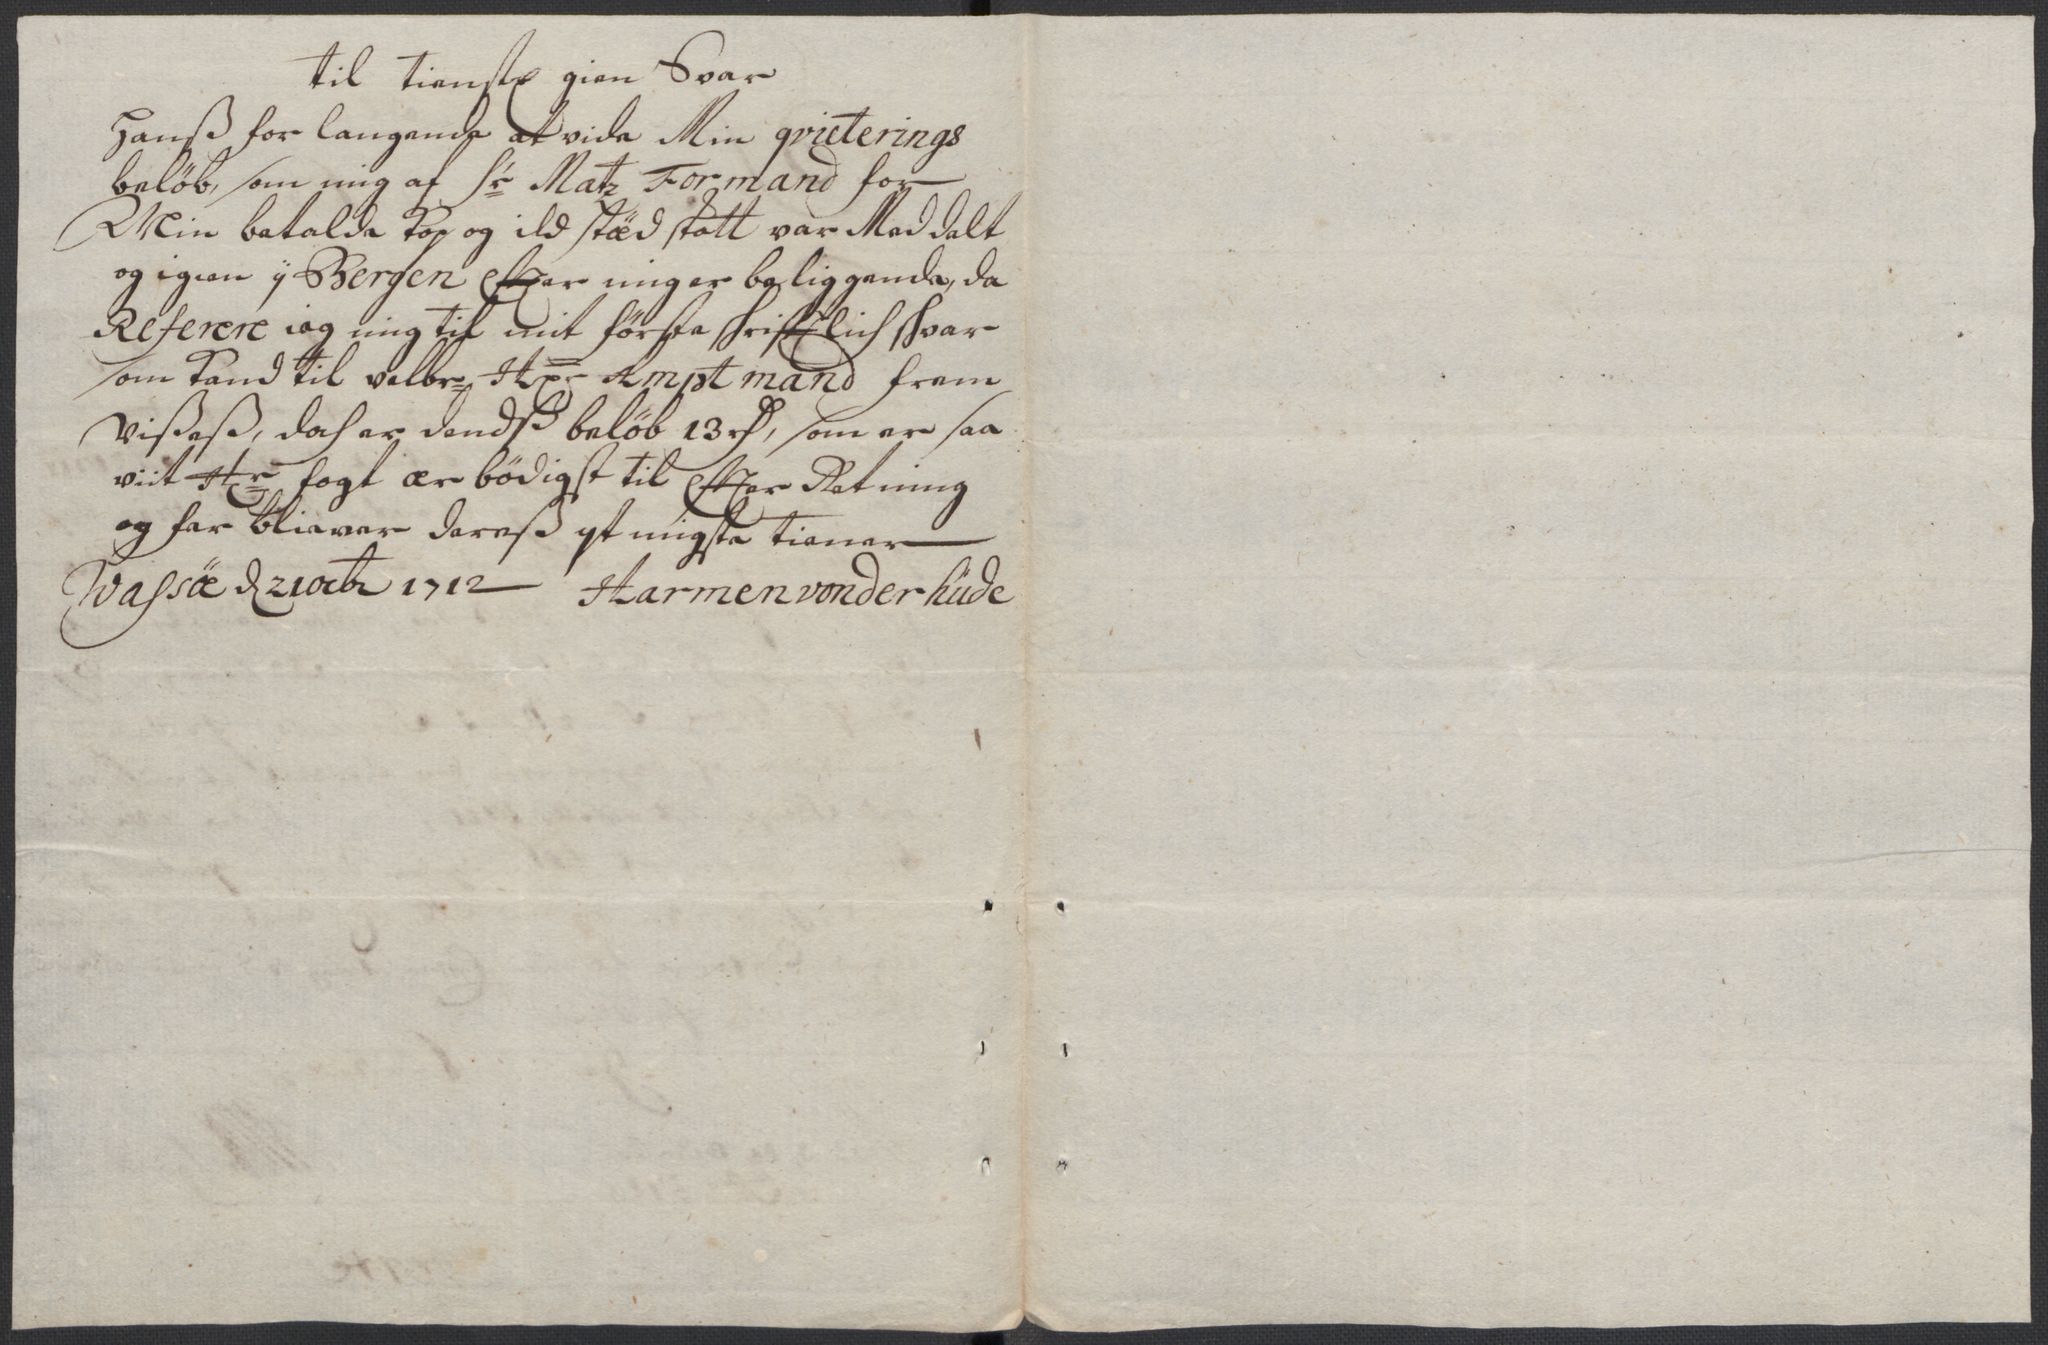 til tienste gien Svar
Hanß for langende at vide Min qvieterings
beløb, som mig af Sr Matz Formand for
Min betalde kop og ild stæd skatt var Med delt
og igien ÿ Bergen Effter mig er beliggende, da
Referere ieg mig til mit første skrifftlich schvar
som kand til velbr Hr Amptmand frem
vißeß, doch er dendß beløb 13 rd, som er saa
viit Hr fogt ær bödigst til Effter Retning
og for bliever dereß ÿt migste tiener
Wassöe d 21 octbr 1712 Harmen vonder hüde